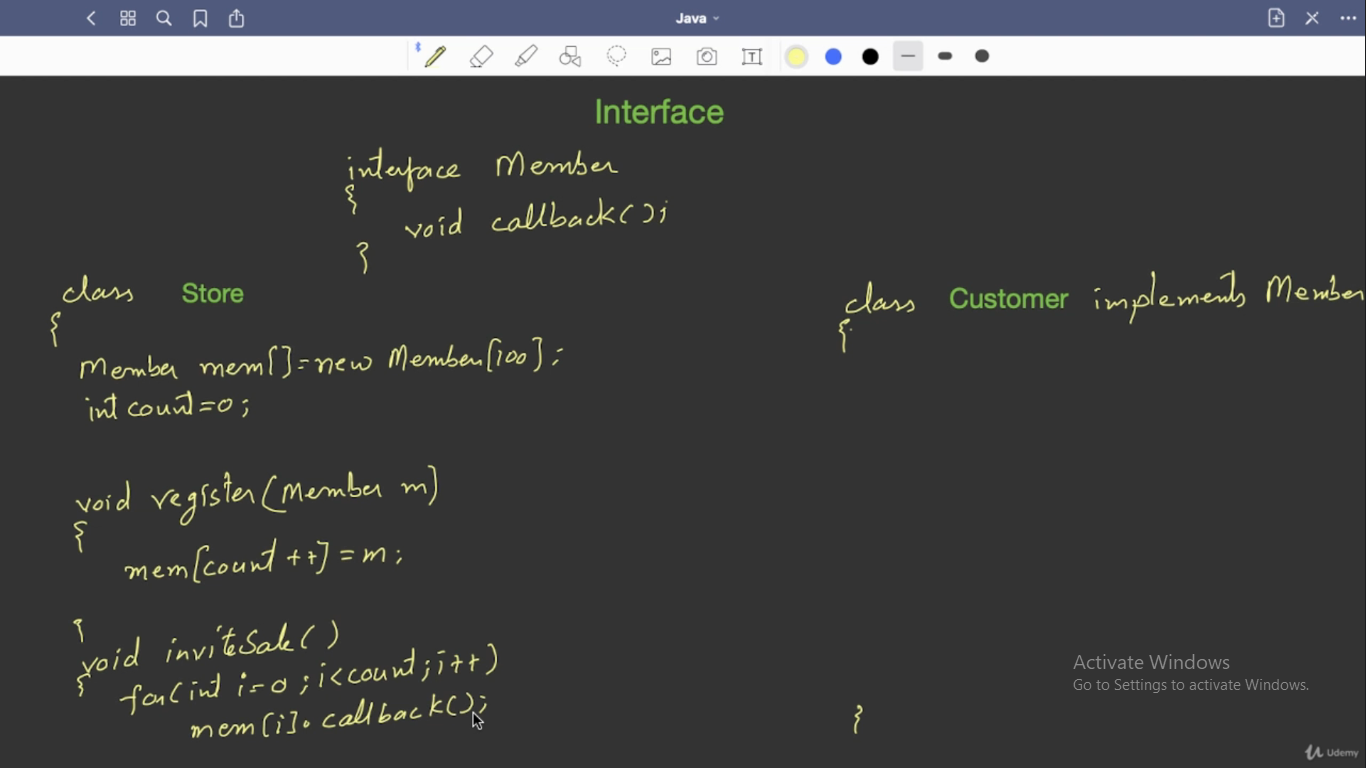 Java
T
Interface
interface Member
{
void callback();
}
class Store
{
Member mem[]=new Member[100];
int count=0;
void register(Member m)
{
mem[count++]=m;
}
void inviteSale()
{
for(int i=0;i<count;i++)
mem[i].callback();
class Customer implements Member
{
}
Activate Windows
Go to Settings to activate Windows.
Udemy